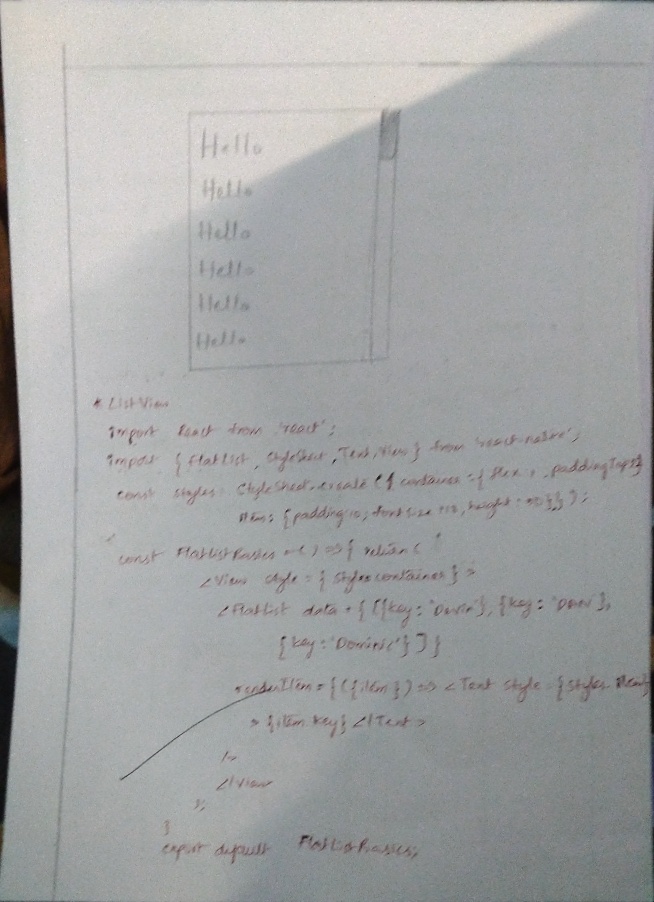 Hello
Hello
Hello
Hello
Hello
Hello
* ListView
import React from 'react';
import { FlatList, StyleSheet, Text, View } from 'react-native';
const styles = StyleSheet.create ({ container : { flex : , paddingTop:
item: {padding:10, font size :18, height :
const FlatListBasics = () => { return (
<View style = { styles.container } >
<FlatList data = { [{key: 'Devin'}, {key: 'Dan'},
{key: 'Dominic'} ] }
renderItem = { ({item }) => <Text style = {styles.item}
> {item.key} </Text>
/>
</View
);
}
export default FlatListBasics;